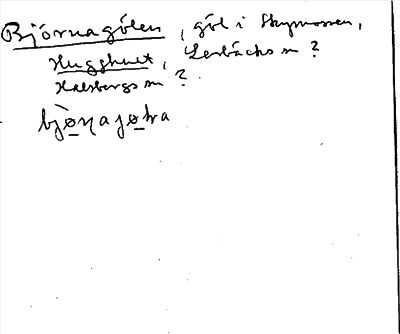 Björnagölen, göl i Skymossen,
Hugghult, Lerbäcks sn ?
Halsbergs sn ?
bjònajọ